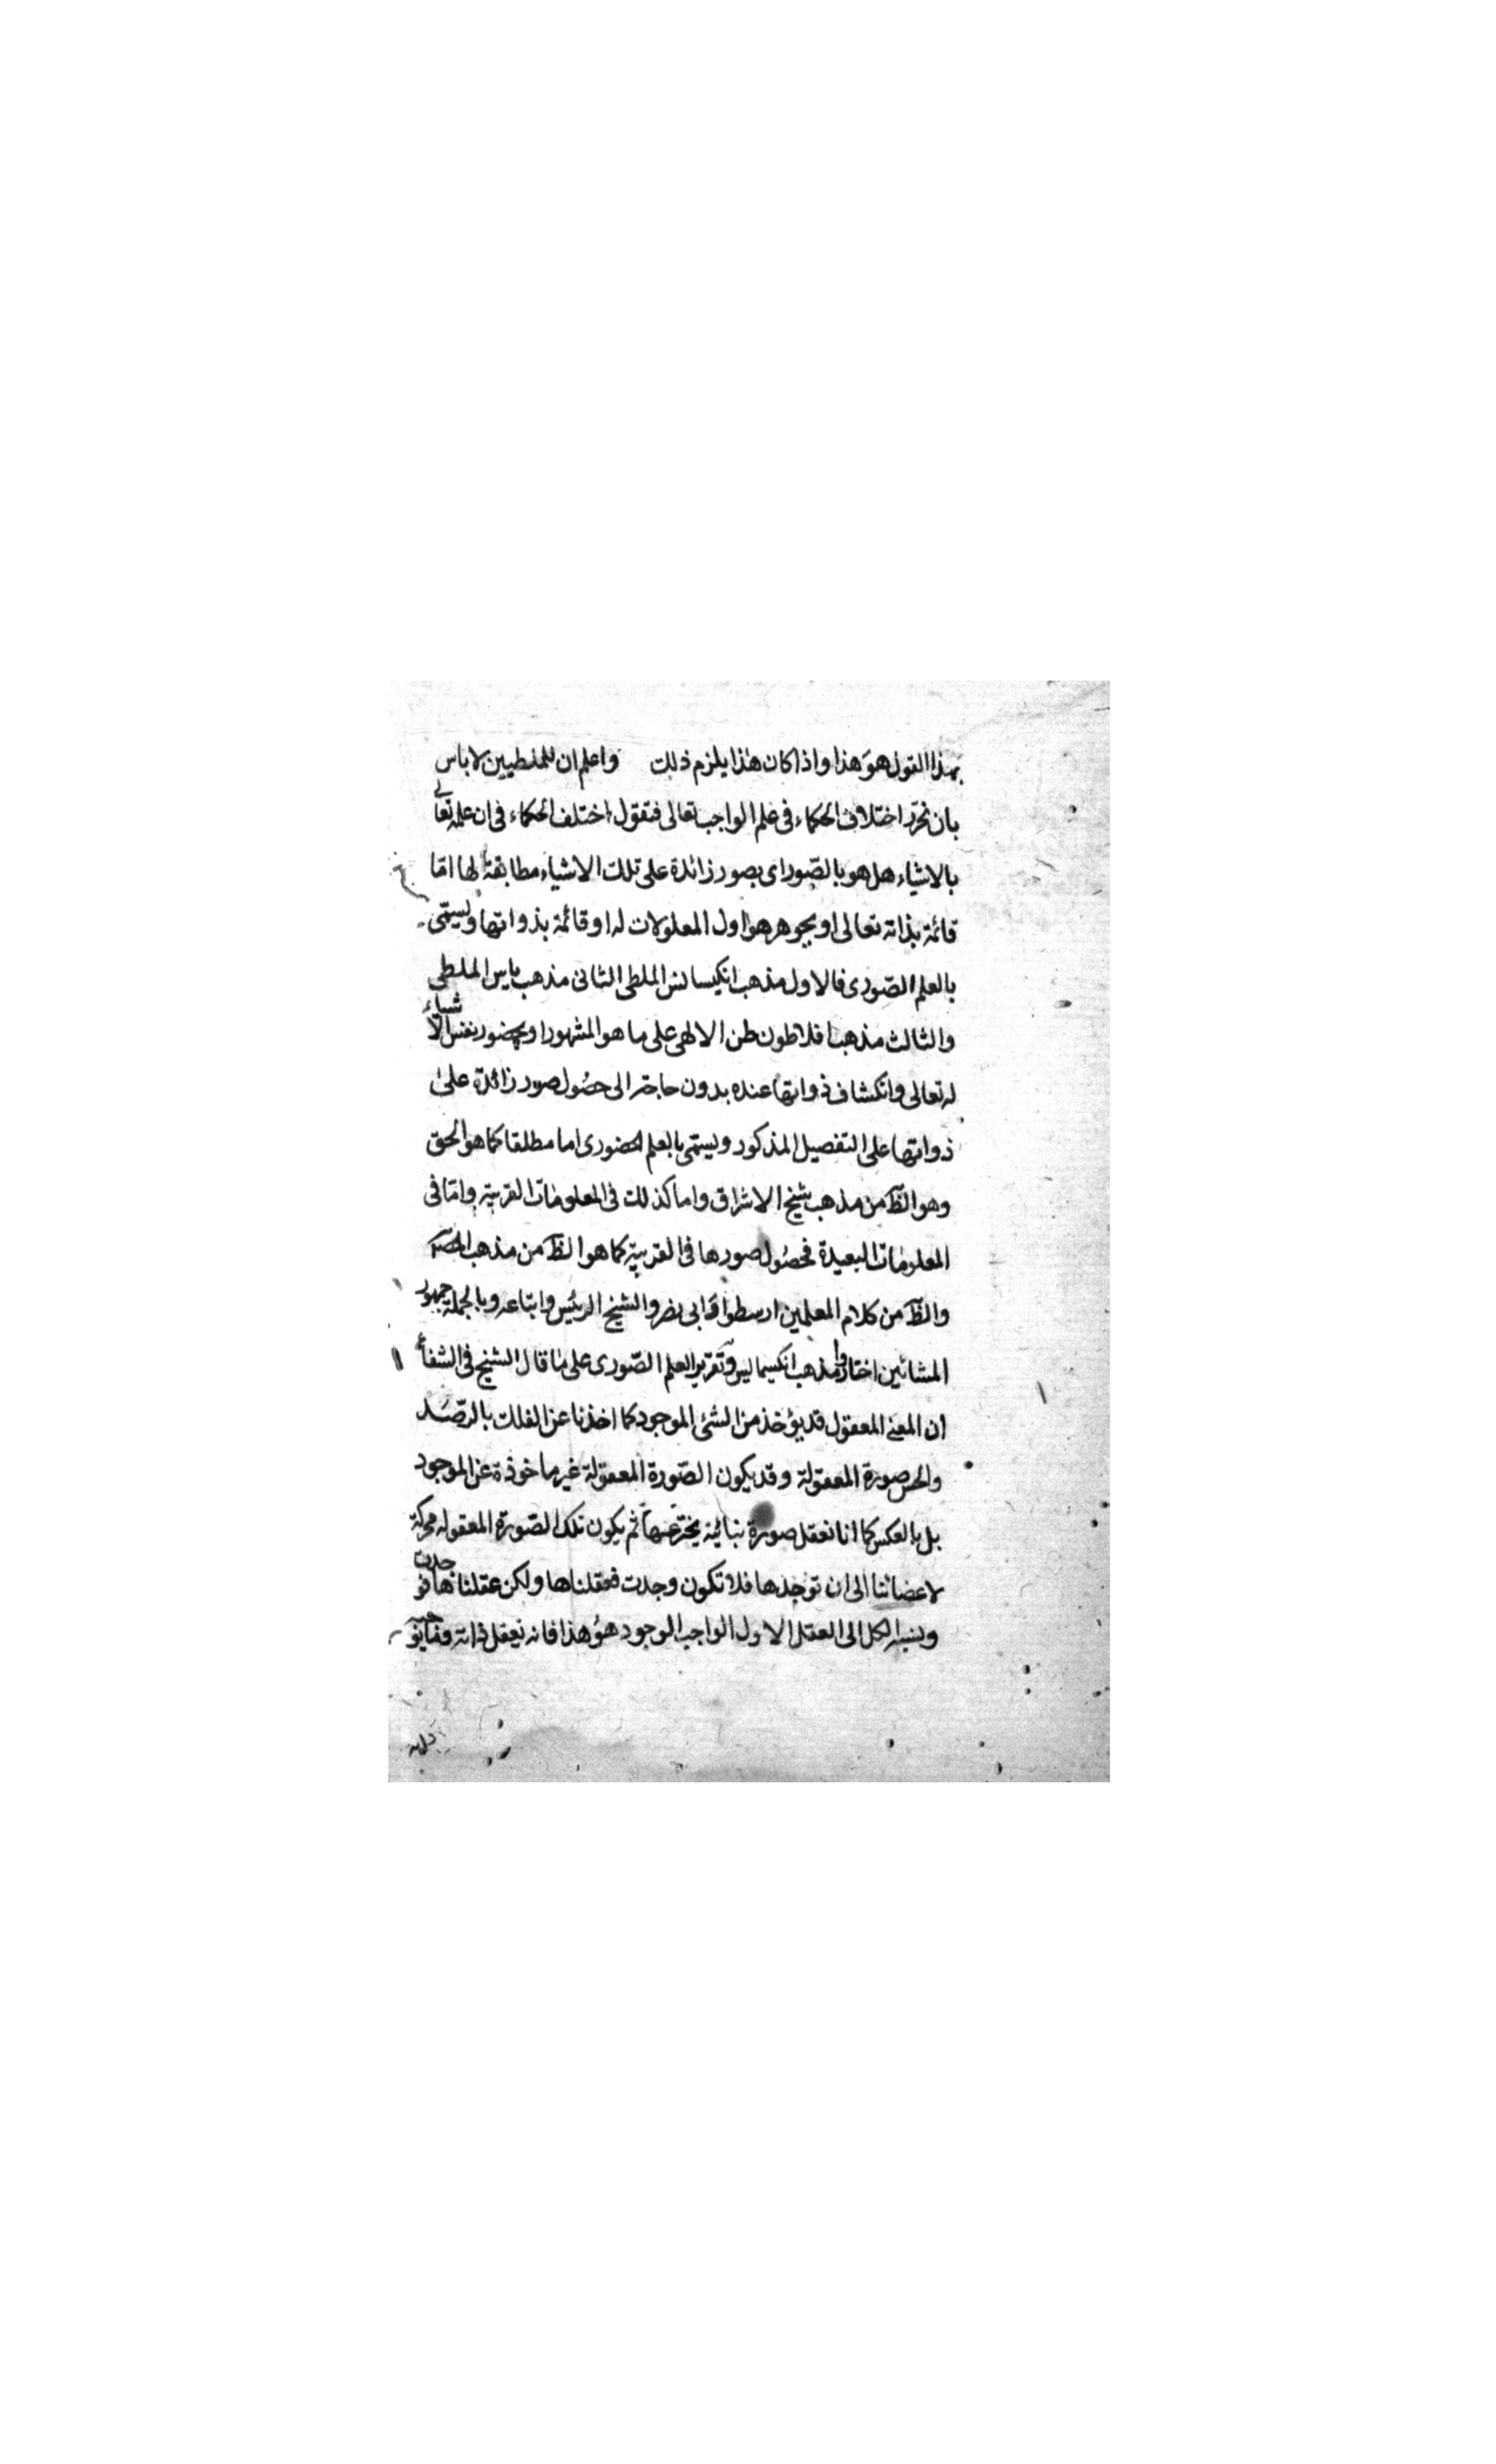 بهذا القول هو هذا واذا كان هذا يلزم ذلك واعلم ان للملطيين لا باس
بان نحرر اختلاف الحكماء فى علم الواجب تعالى فنقول اختلف الحكماء فى ان علمه تعالى
بالاشياء هل هو بالصور اى بصور زائدة على تلك الاشياء مطابقة لها اما
قائمة بذاته تعالى او بجوهر هو اول المعلولات له او قائمة بذواتها ويسمى
بالعلم الصورى فالاول مذهب انكيسانس الملطى الثانى مذهب ياس الملطى
والثالث مذهب افلاطون الالهى على ما هو المشهور او بحضور نفس الاشياء
له تعالى وانكشاف ذواتها عنده بدون حاجة الى حصول صور زائدة على
ذواتها على التفصيل المذكور ويسمى بالعلم الحضورى اما مطلقا كما هو الحق
وهو الظ من مذهب شيخ الاشراق واما كذلك فى المعلومات القريبة واما فى
المعلومات البعيدة فحصول صورها فى القريبة كما هو الظ من مذهب المص
والظ من كلام المعلمين ارسطو وابى نصر والشيخ الرئيس واتباعه وبالجملة جمهور
المشائين اختاروا مذهب انكسيماليس وتقرير العلم الصورى على ما قال الشيخ فى الشفاء
ان المعنى المعقول قد يؤخذ من الشئ الموجود كما اخذنا عن الفلك بالرصد
والحس صورة المعقولة وقد يكون الصورة المعقولة غير ماخوذة عن الموجود
بل بالعكس كما انا نعقل صورة بنائية يخترعها ثم يكون تلك الصورة المعقوله محركة
لاعضائنا الى ان توجدها فلا تكون وجدت فعقلناها ولكن عقلناها فوجدت
ونسبة الكل الى العقل الاول الواجب الوجود هو هذا فانه يعقل ذاته وما يوجبه